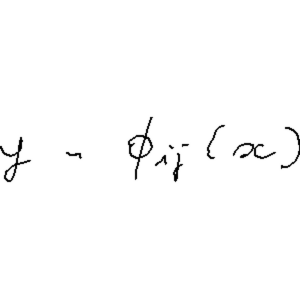 y - ϕ_{ij}(x)